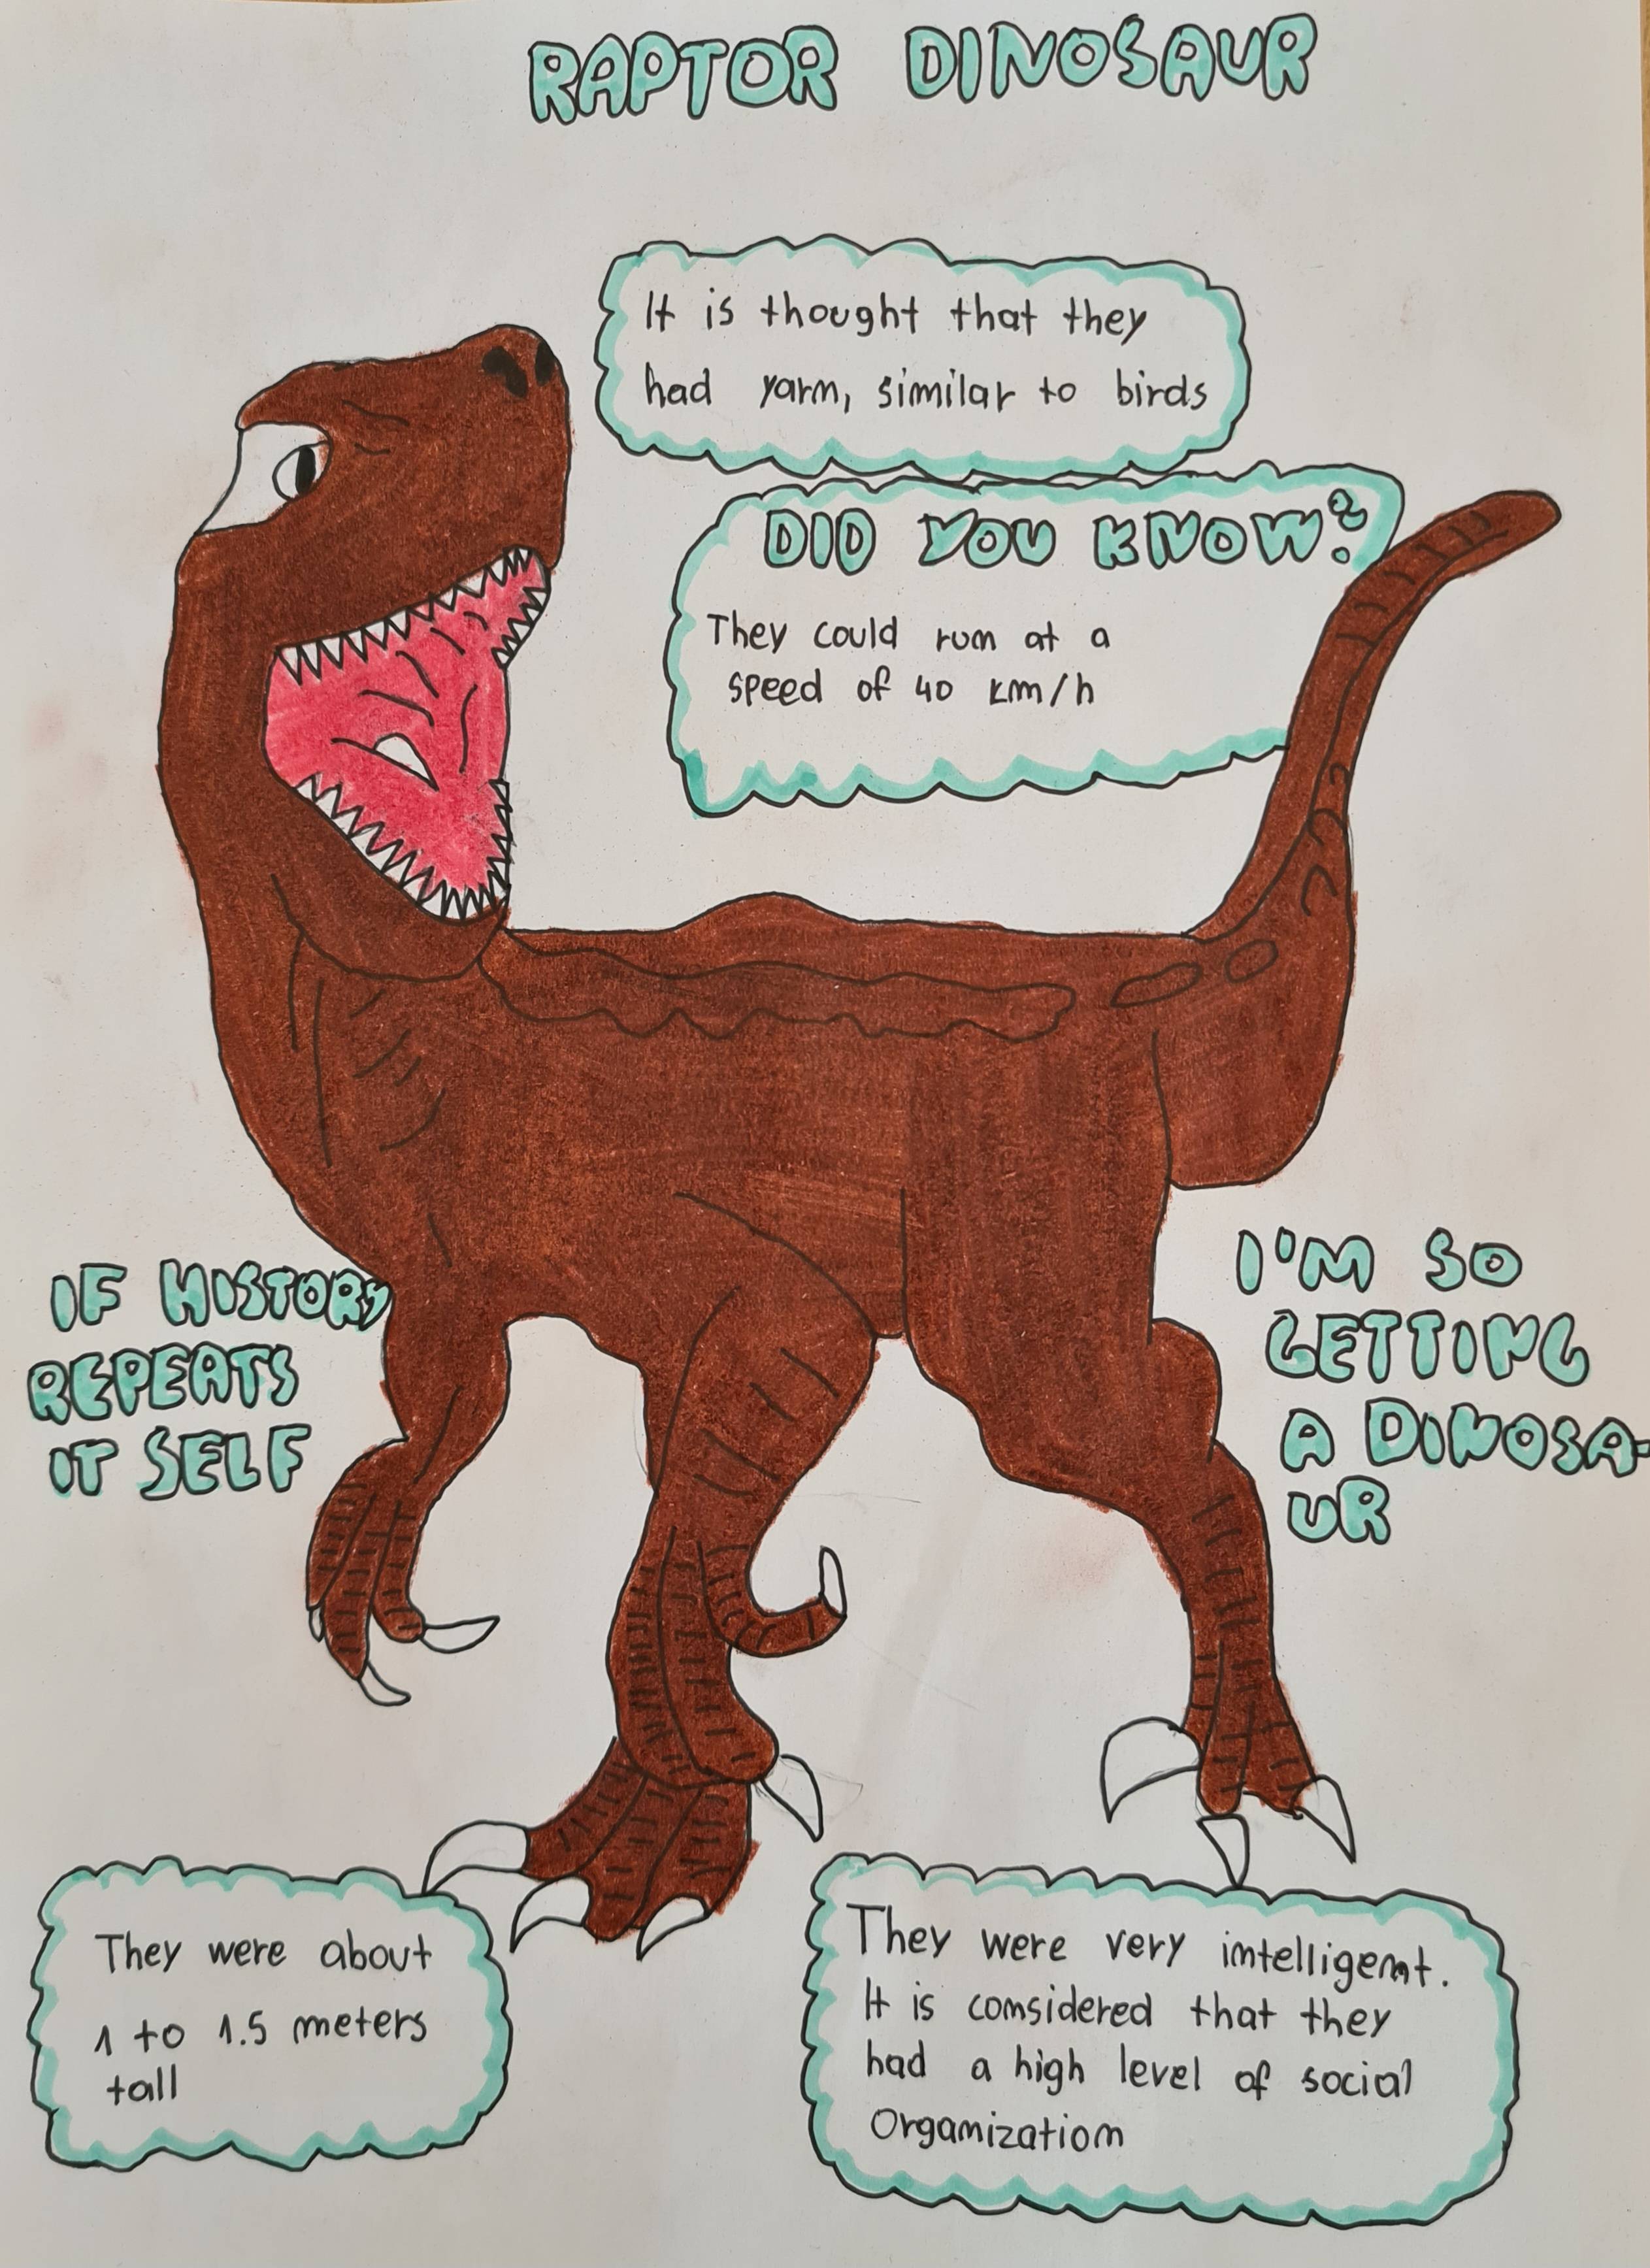 RAPTOR DINOSAUR
It is thought that they
had yarn, similar to birds
DID YOU KNOW?
They could run at a
speed of 40 km/h
IF HISTORY
REPEATS
IT SELF
I'M SO
GETTING
A DINOSA-
UR
They were about
1 to 1.5 meters
tall
They were very intelligent.
It is considered that they
had a high level of social
Organization